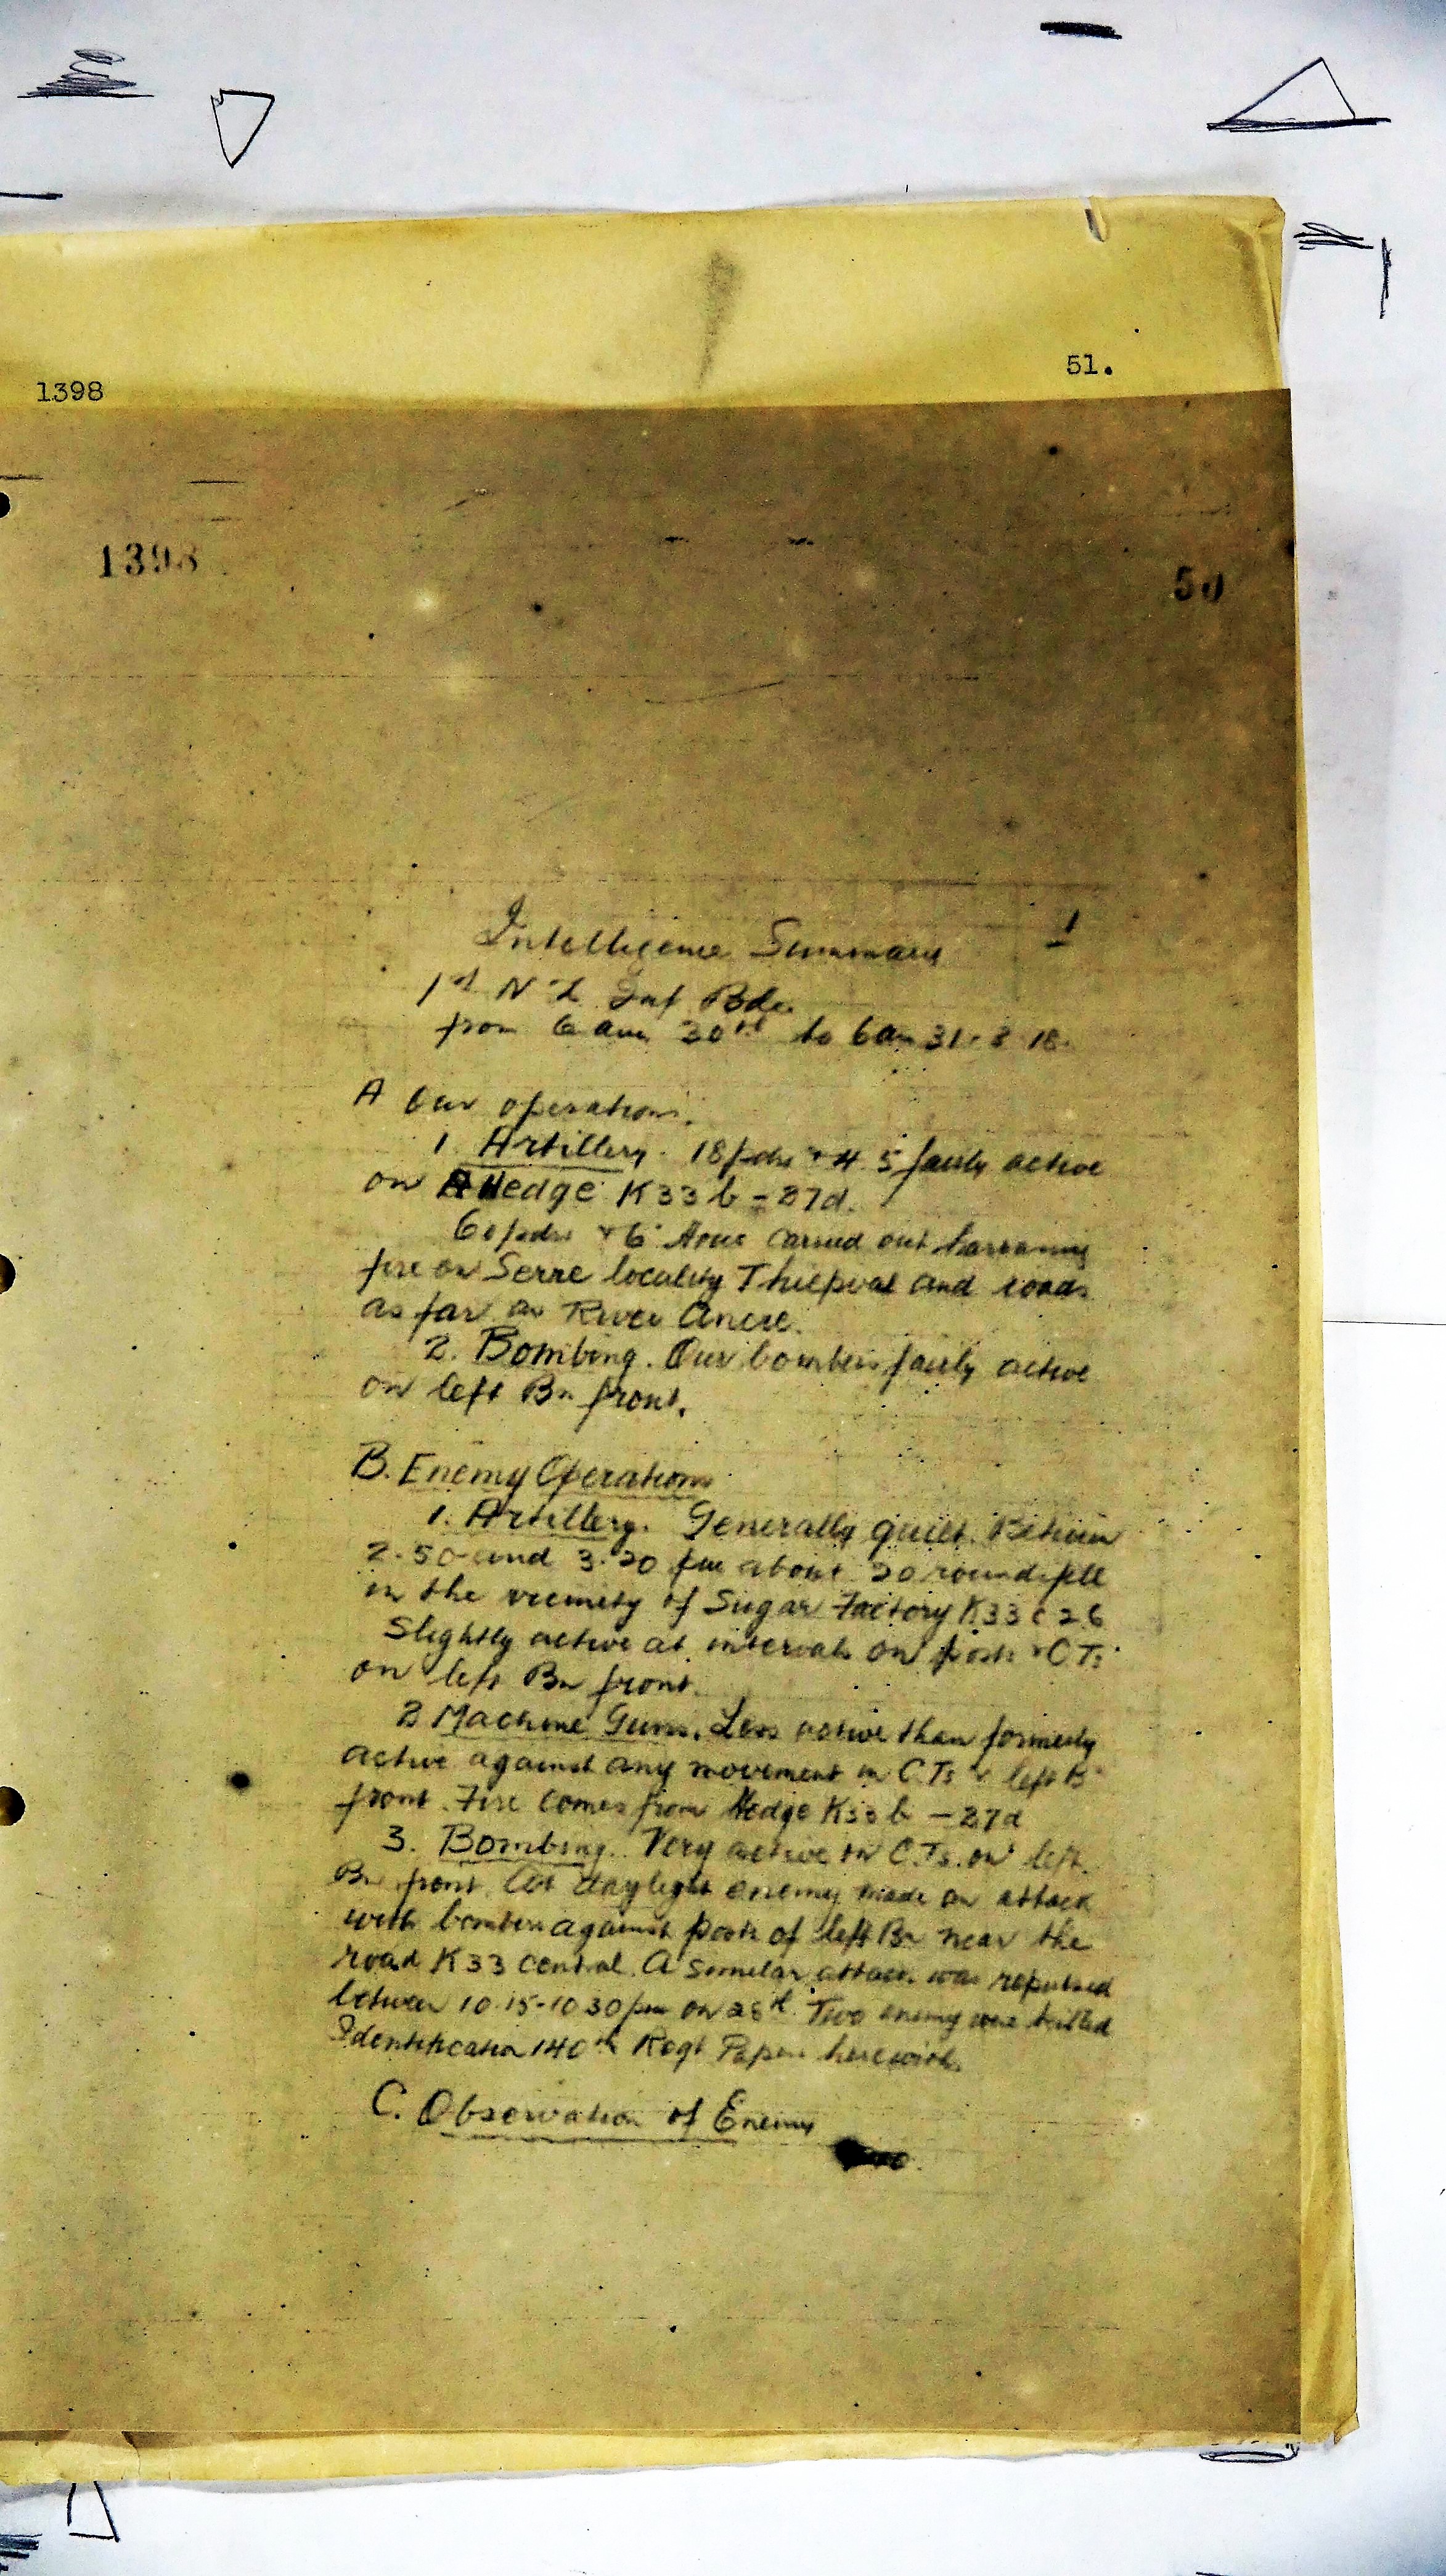 1398
51.
1398
50
Intelligence Summary 1
1st N Z Inf Bde.
from 6 am 30th to 6am 31.3 18.
A Our operations.
1 Artillery. 18 pdrs + 4.5 fairly active
on Hedge K33 b - 27d.
60 pdrs + 6" Hows carried out harassing
fire on Serre locality Thiepval and roads
as far as River Ancre.
2. Bombing. Our bombers fairly active
on left Bn front.
B. Enemy Operations
1. Artillery. Generally quiet. Between
2.50 and 3.20 pm about 20 rounds fell
in the vicinity of Sugar Factory K33 c 26
Slightly active at intervals on posts + C Ts
on left Bn front.
2 Machine Guns. Less active than formerly
active against any movement in C.Ts left B
front. Fire comes from Hedge K33 b - 27d
3. Bombing. Very active on C.Ts. on left
Bn front. At daylight enemy made an attack
with bombers against posts of left Bn near the
road K33 central. A similar attack was repulsed
between 10.15-10 30 pm on Two enemy were killed
Identification 140th Regt Papers herewith.
C. Observation of Enemy